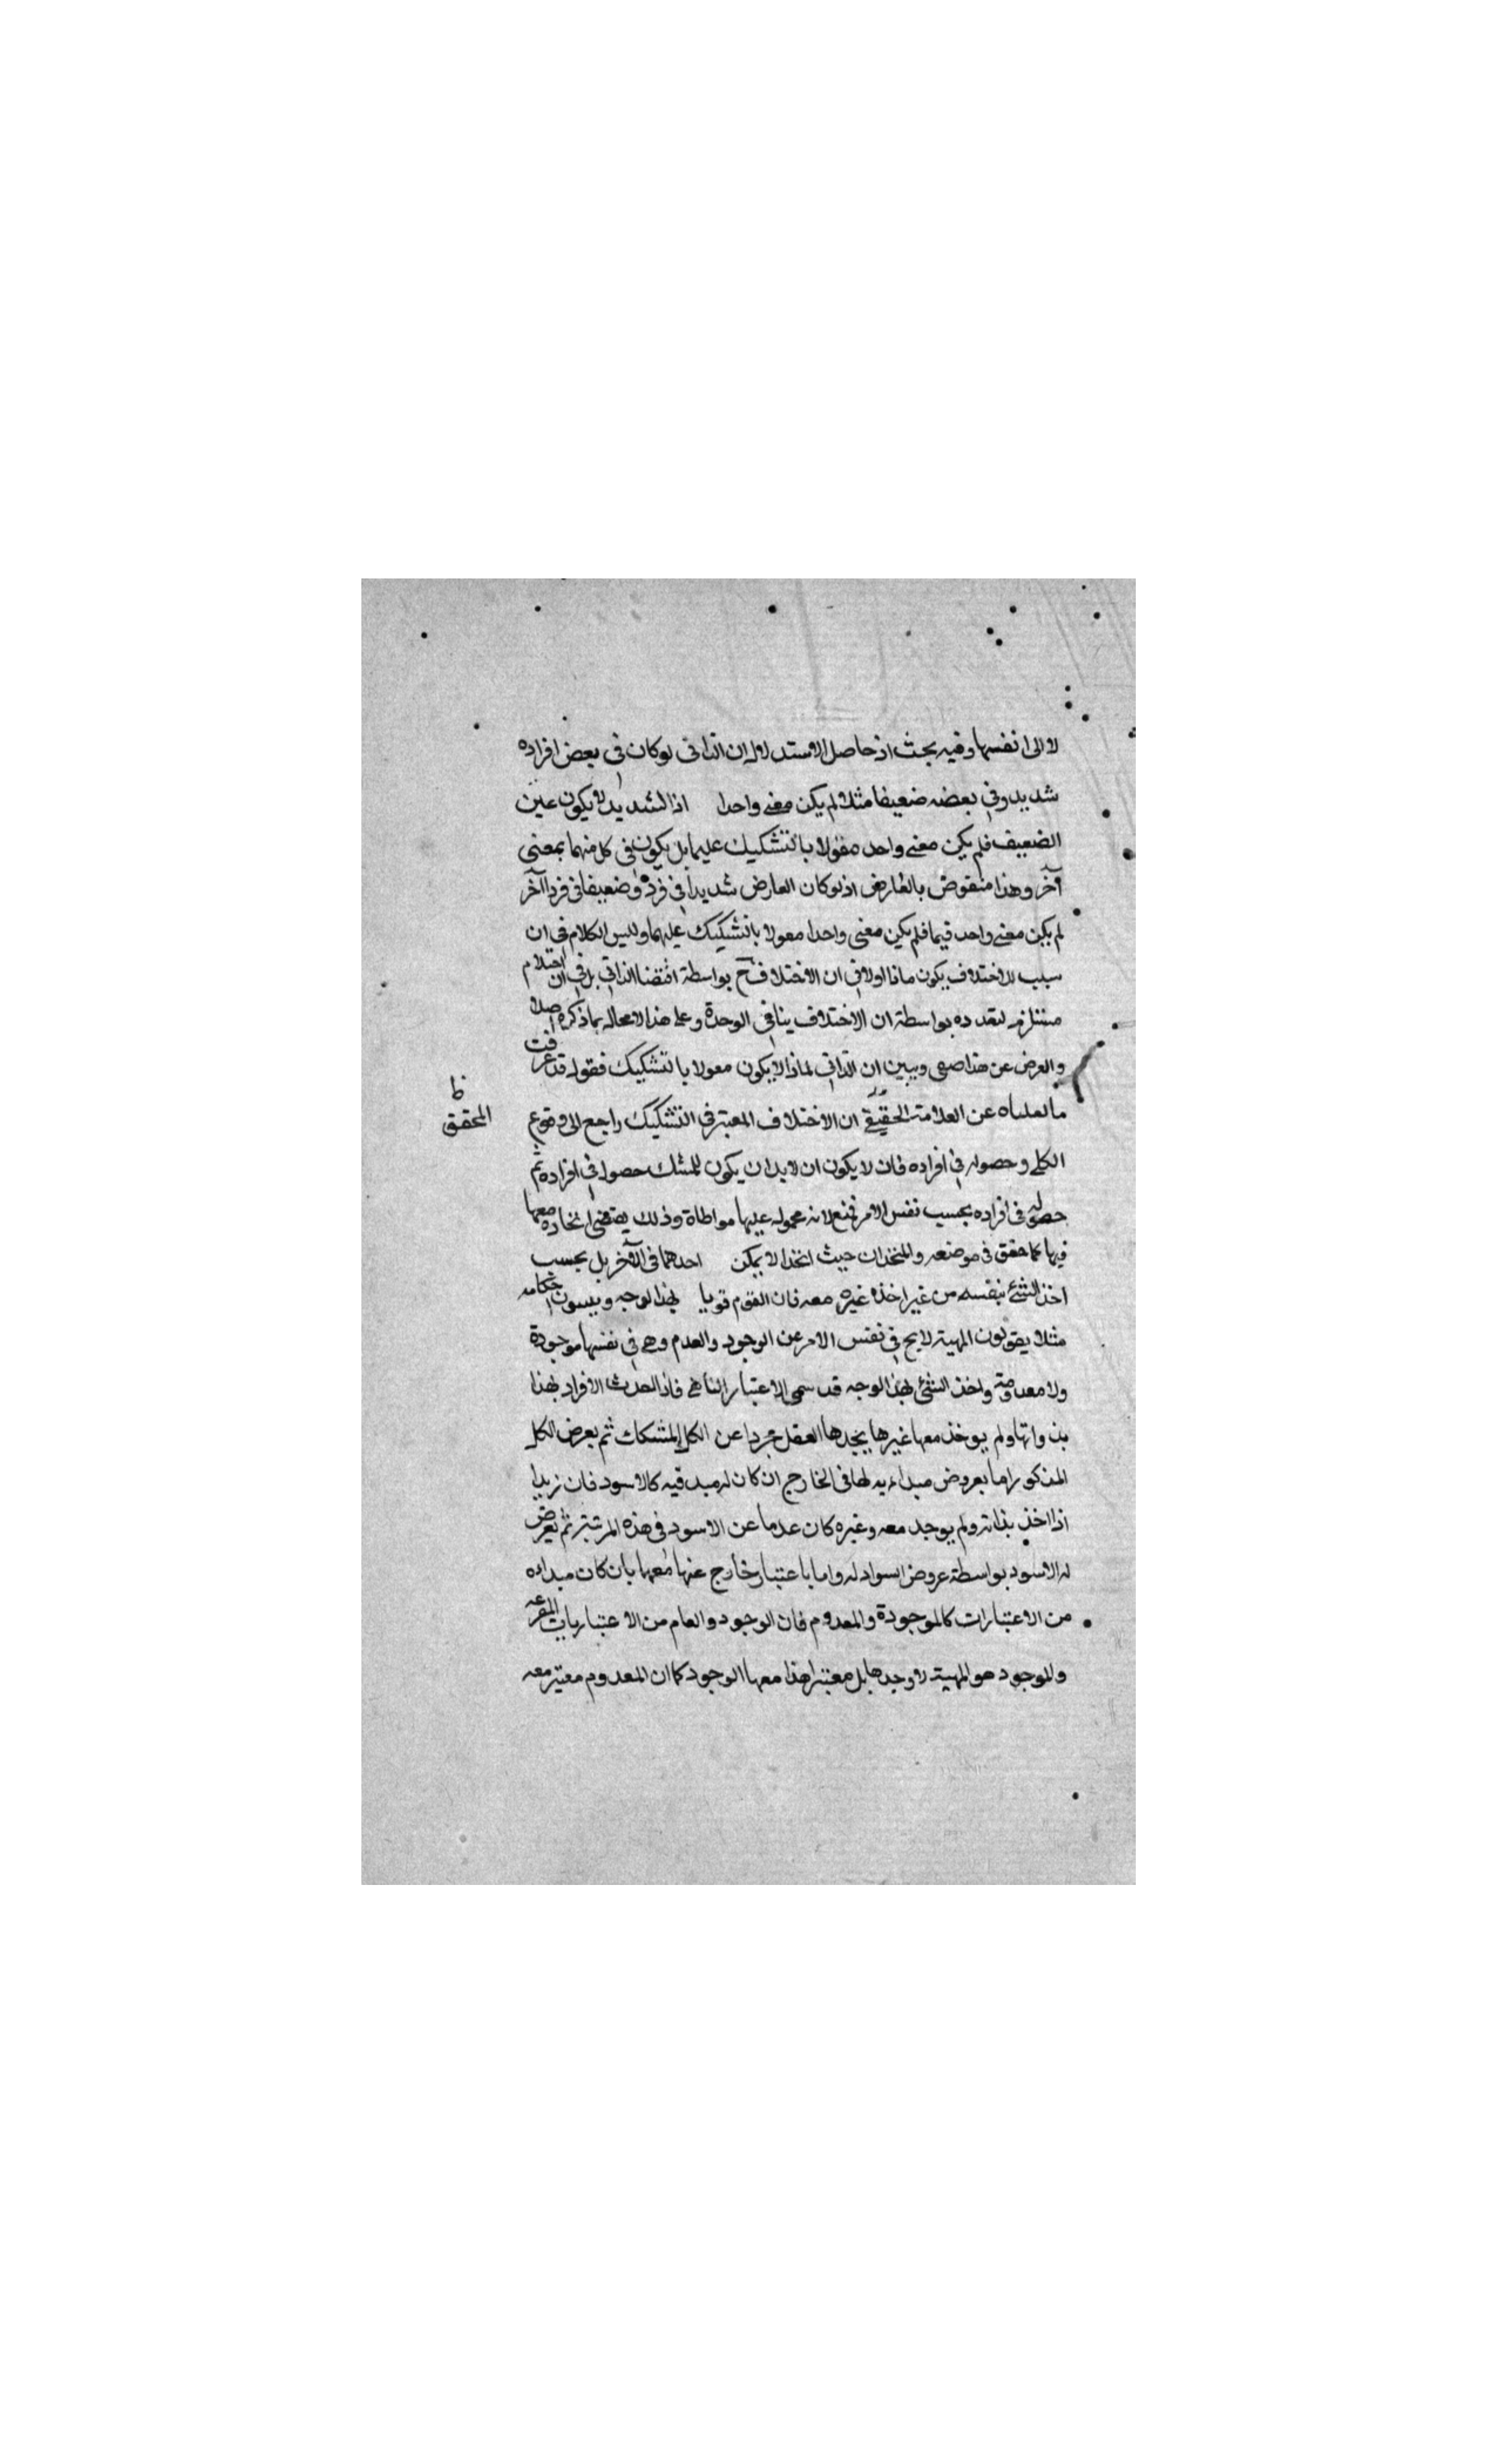 لا الى انفسها وفيه بحث اذ حاصل الاستدلال ان الذاتى لو كان فى بعض افراده
شديد وفى بعضه ضعيفا مثلا لم يكن معنى واحدا اذ الشديد لا يكون عين
الضعيف فلم يكن معنى واحد مقولا بالتشكيك عليها بل يكون فى كل منهما بمعنى
آخر وهذا منقوض بالعارض اذ لو كان العارض شديدا فى فرد وضعيفا فى فرد آخر
لم يكن معنى واحد فيما فلم يكن معنى واحدا معولا بالتشكيك عليهما وليس الكلام فى ان
سبب الاختلاف يكون ماذا اولا فى ان الاختلاف ح بواسطة اقتضا الذاتى بل فى ان
مستلزم لتعدده بواسطة ان الاختلاف ينافى الوحدة وعلى هذا لا محاله بما ذكره اصلا
والعرض عن هذا صعى ويبين ان الذاتى لماذا لا يكون معولا بالتشكيك فقوله قد عرفت
ما نقلناه عن العلامة الحقيقى ان الاختلاف المعتبر فى التشكيك راجع الى وقوع
ظ
المحقق
الكلى وحصوله فى افراده فان لا يكون ان لابد ان يكون للمشك حصول فى افراده ثم
حصوله فى افراده بحسب نفس الامر ممتنع لانه محموله عليها مواطاة وذلك يقتضى اتحاده معها
فيها كما حقق فى موضعه والمتحدان حيث اتحدا لا يمكن احدهما فى الآخر بل بحسب
اخذ الشئ بنفسه من غير اخذه غيره معه فان القوم قويا بهذا الوجه ويسون احكامه
مثلا يقولون المهية لا يح فى نفس الامر عن الوجود والعدم وهى فى نفسها موجودة
ولا معدومة واخذ الشئ بهذا الوجه قد سمى الاعتبار فاذا الافراد بهذا
بذواتها ولم يوخذ معها غيرها يجدها العقل مجردا عن الكل المشكك ثم يعرض الكل
المذكور اما بعروض مبداء به لها فى الخارج ان كان له مبد فيه كالاسود فان زيدا
اذا اخذ بذاته ولم يوجد معه وغيره كان عدما عن الاسود فى هذه المرتبة ثم يعرض
له الاسود بواسطة عروض السواد له واما باعتبار خارج عنها معها بان كان مبداه
من الاعتبارات كالموجودة والمعدوم فان الوجود والعام من الاعتباريات
والموجود هو المهية لا وحدها بل معتبرا هذا معها الوجود كما ان المعدوم معتبر معه